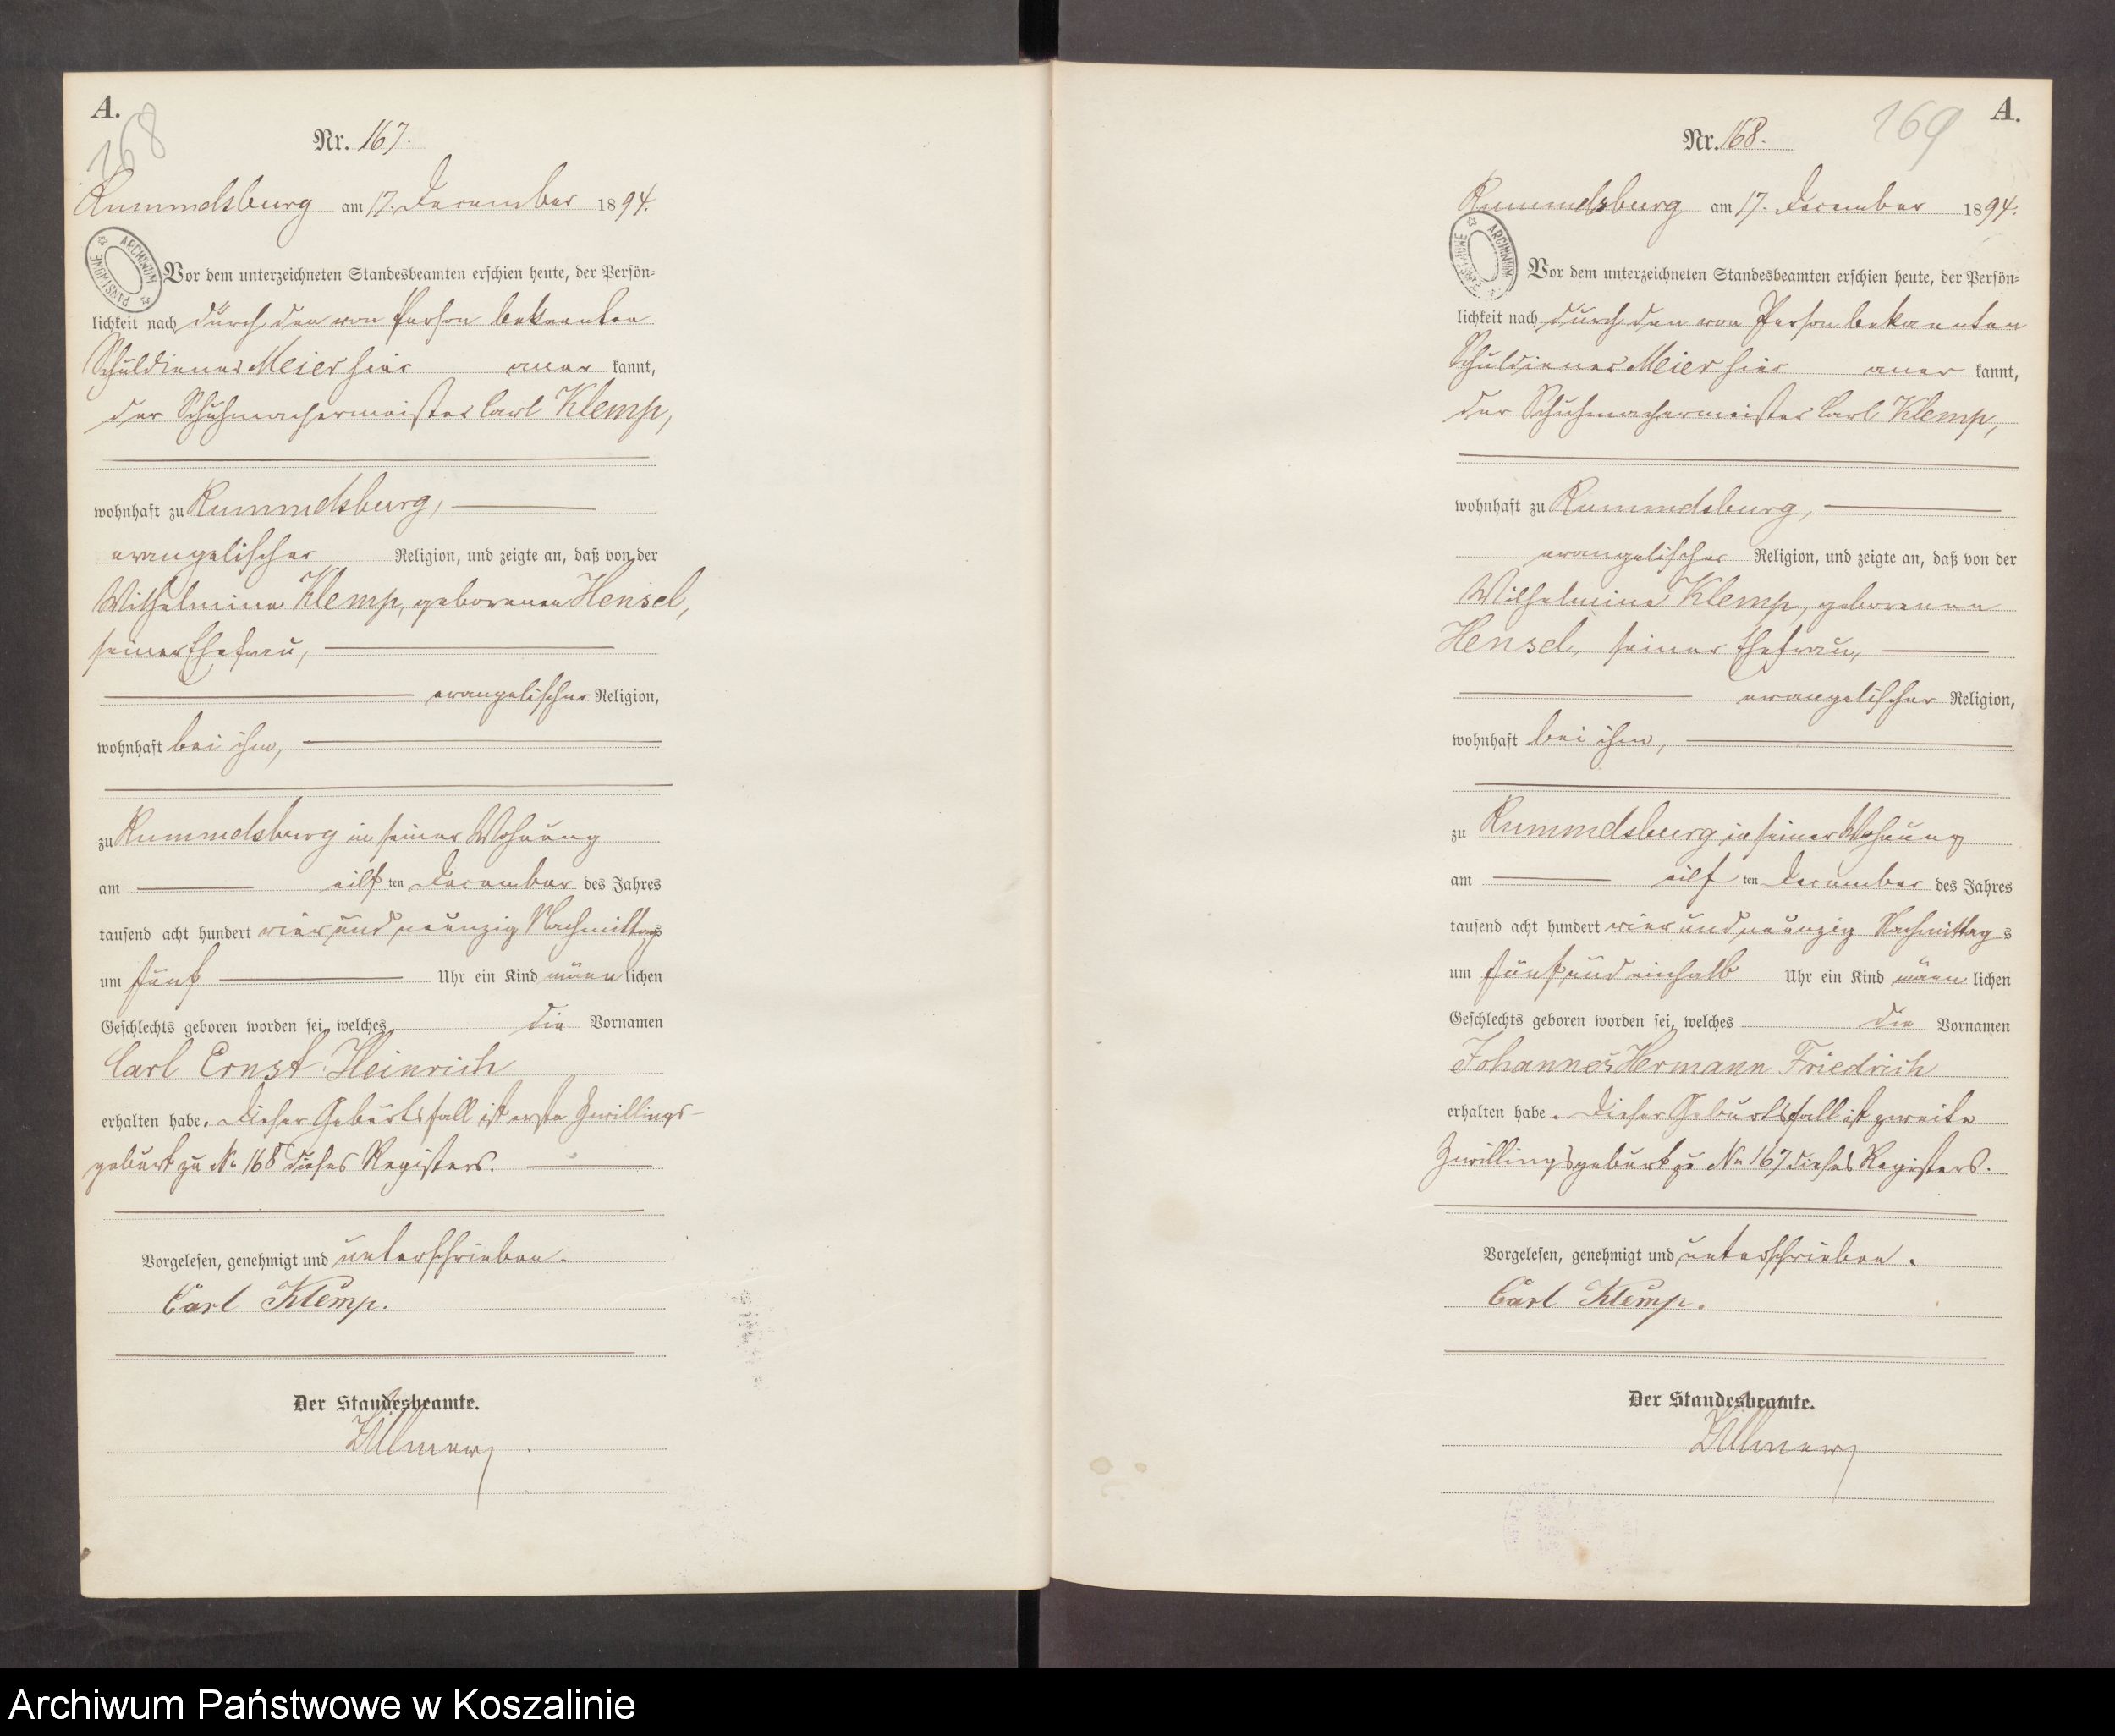 A.
168
Nr. 167.
Rummelsburg am 17. December 1894.
ARCHIWUM PAŃSTWOWE
Vor dem unterzeichneten Standesbeamten erschien heute, der Persön=
lichkeit nach durch den von Person bekannten
Schuldiener Meier hier aner kannt,
der Schuhmachermeister Carl Klemp,
wohnhaft zu Rummelsburg,
evangelischer Religion, und zeigte an, daß von der
Wilhelmine Klemp, geborenen Hensel,
seiner Ehefrau,
evangelischer Religion,
wohnhaft bei ihm,
zu Rummelsburg in seiner Wohnung
am eilf ten December des Jahres
tausend acht hundert vier und neunzig Nachmittags
um fünf Uhr ein Kind männ lichen
Geschlechts geboren worden sei, welches die Vornamen
Carl Ernst Heinrich
erhalten habe. Dieser Geburtsfall ist erste Zwillings-
geburt zu No 168 dieses Registers.
Vorgelesen, genehmigt und unterschrieben.
Carl Klemp.
Der Standesbeamte.
A.
169
Nr. 168.
Rummelsburg am 17. December 1894.
ARCHIWUM PAŃSTWOWE
Vor dem unterzeichneten Standesbeamten erschien heute, der Persön=
lichkeit nach durch den von Person bekannten
Schuldiener Meier hier aner kannt,
der Schuhmachermeister Carl Klemp,
wohnhaft zu Rummelsburg,
evangelischer Religion, und zeigte an, daß von der
Wilhelmine Klemp, geborenen
Hensel, seiner Ehefrau,
evangelischer Religion,
wohnhaft bei ihm,
zu Rummelsburg in seiner Wohnung
am eilf ten December des Jahres
tausend acht hundert vier und neunzig Nachmittag s
um fünf und einhalb Uhr ein Kind männ lichen
Geschlechts geboren worden sei, welches die Vornamen
Johannes Hermann Friedrich
erhalten habe. Dieser Geburtsfall ist zweite
Zwillingsgeburt zu No 167 dieses Registers.
Vorgelesen, genehmigt und unterschrieben.
Carl Klemp.
Der Standesbeamte.
Archiwum Państwowe w Koszalinie